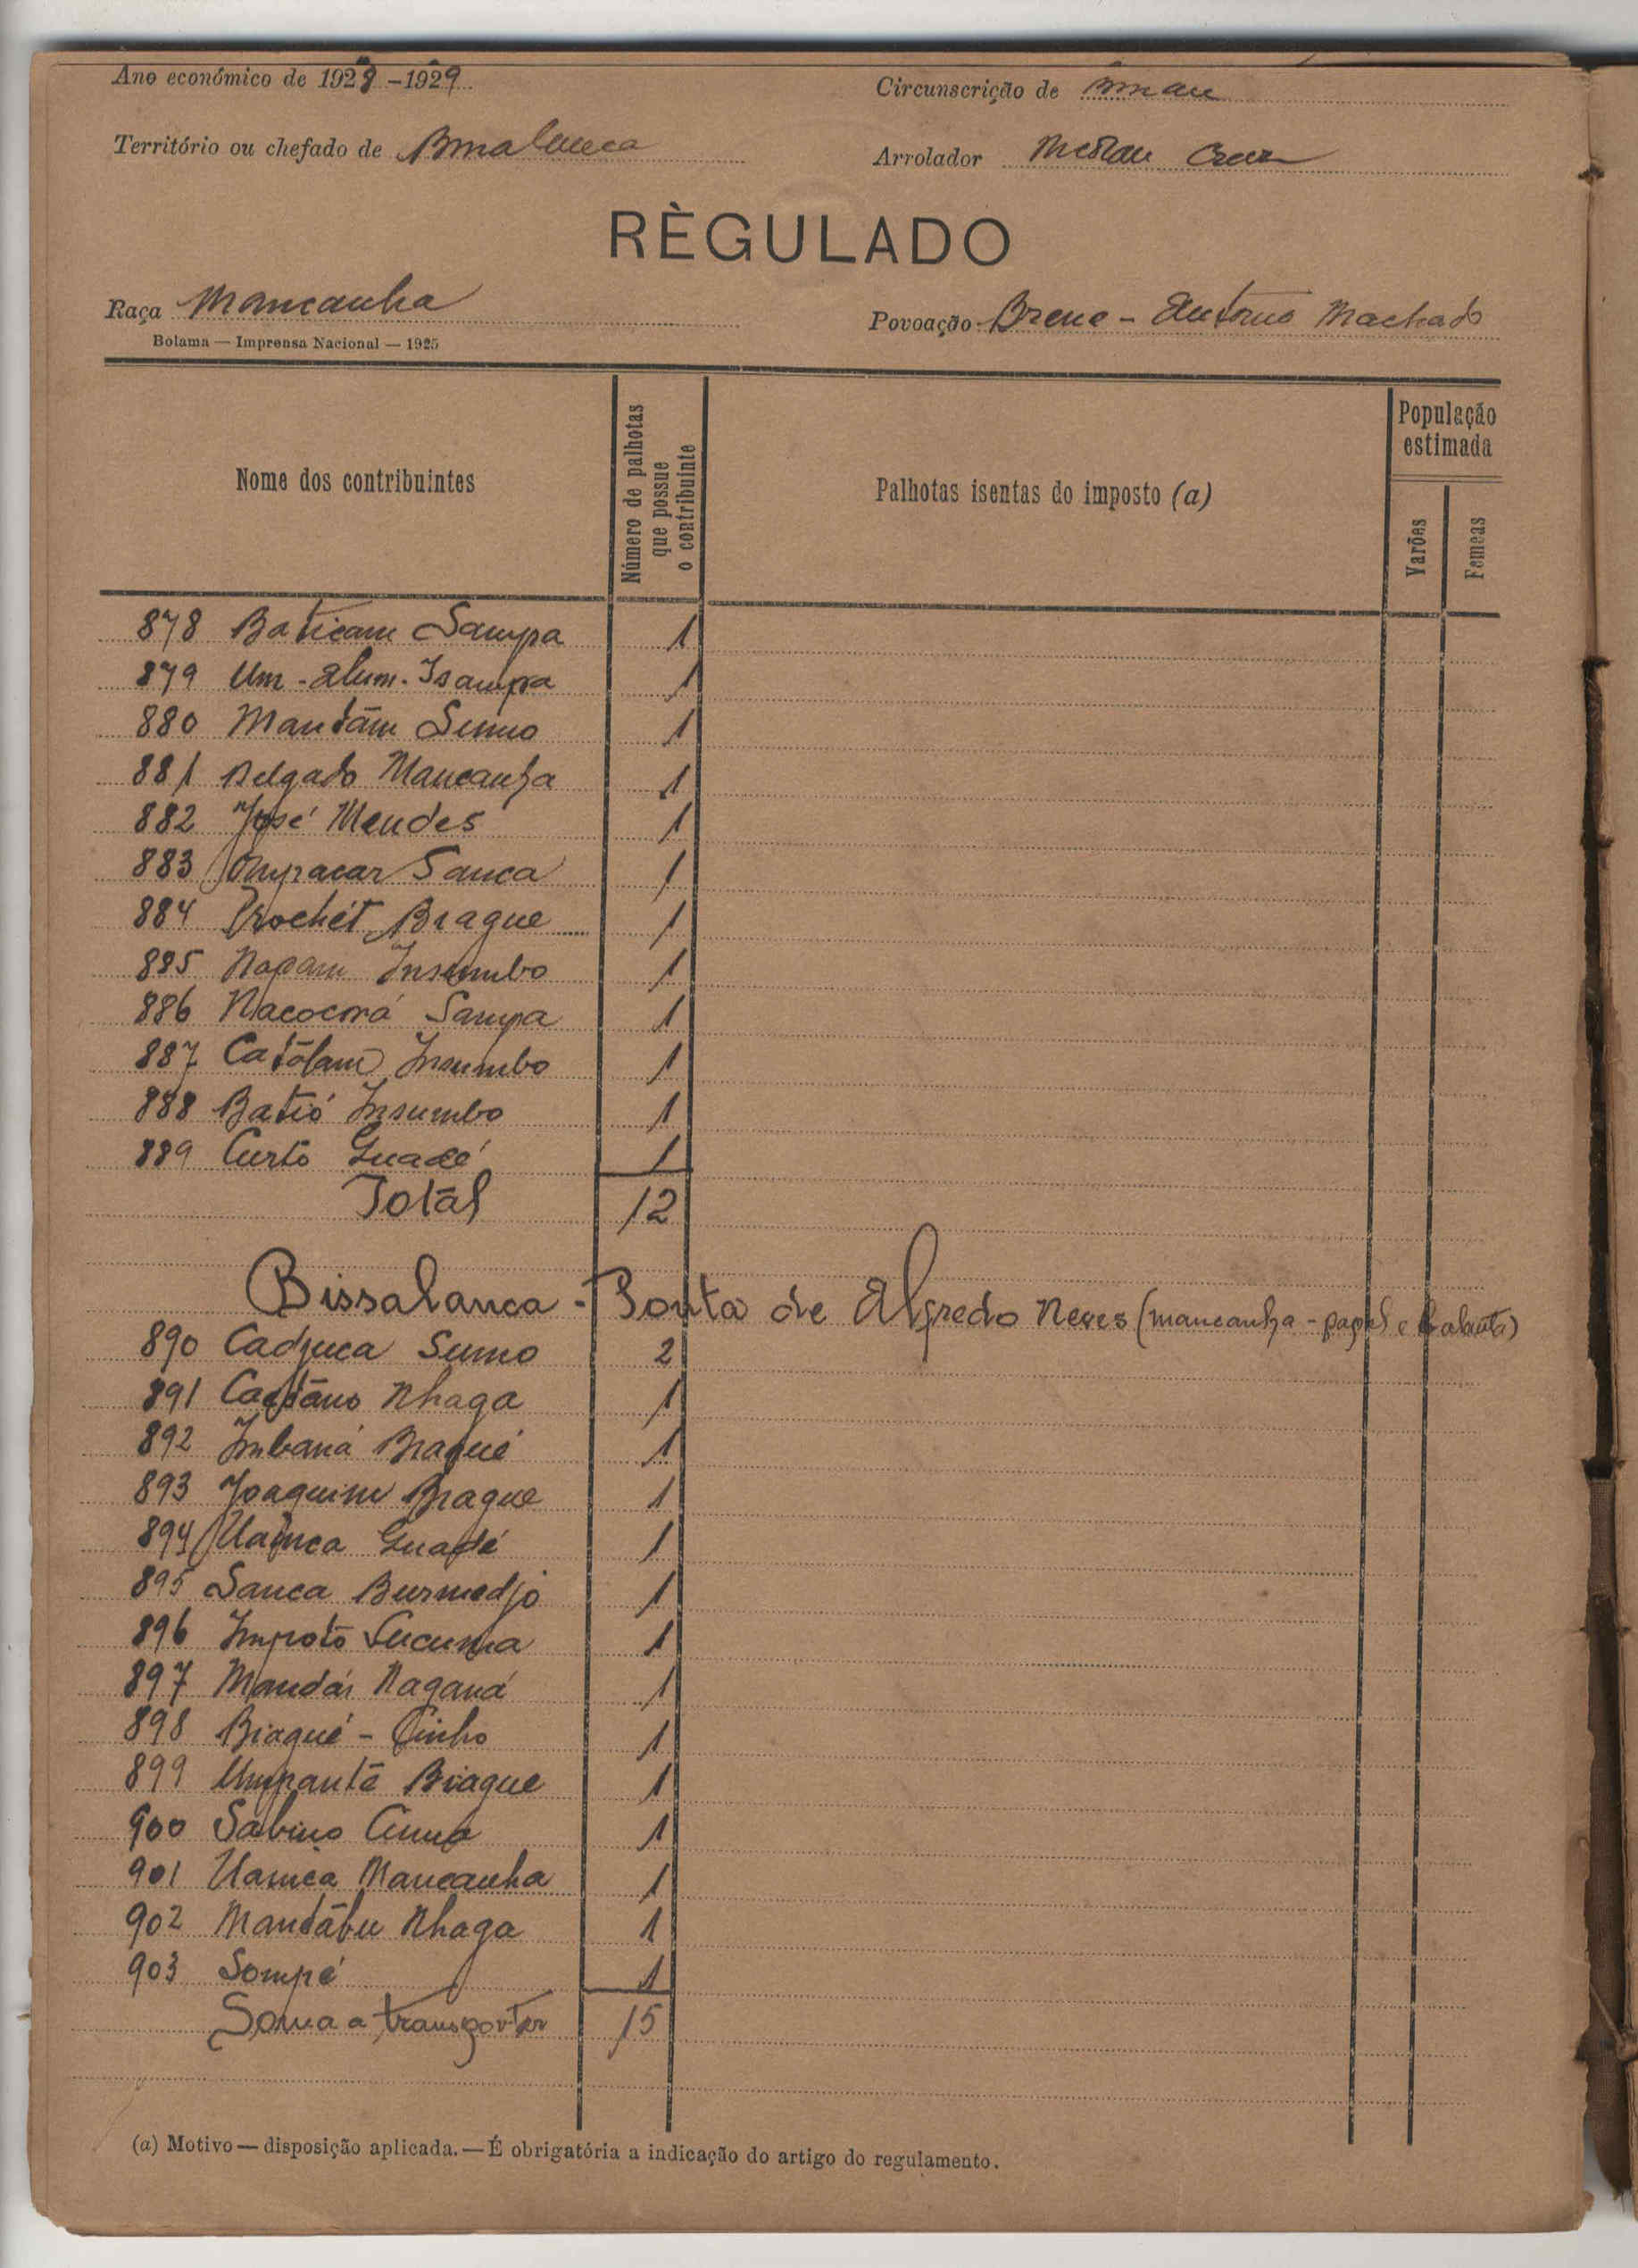 Ano económico de 1928-1929
Circunscrição de Bissau
Território ou chefado de Bissalanca
Arrolador Cruz
RÈGULADO
Raça Mancanha
Povoação Brene - Antonio Machado
Bolama — Imprensa Nacional — 1925
Nome dos contribuintes
Número de palhotas que possue o contribuinte
Palhotas isentas do imposto (a)
População estimada
Varões
Femeas
878 Baticam Sampa 1
879 Um-alum-Isampa 1
880 Mantām Sumo 1
881 Delgado Mancanha 1
882 José Mendes 1
883 Ompacar Sanca 1
884 Brague 1
885 Napam Insumbo 1
886 Nacocorá Sampa 1
887 Catōlam Insumbo 1
888 Batió Insumbo 1
889 Curto Guadé 1
Total 12
Bissalanca - Ponta de Alfredo Neves (mancanha - papel e balanta)
890 Cadjuca Sumo 2
891 Caetāno Nhaga 1
892 Imbaná Biagué 1
893 Joaquim Biague 1
894 Guadé 1
895 Sanca Burmedjo 1
896 Impotō Sucuma 1
897 Mandái Naganá 1
898 Biagué - Quinho 1
899 Umpantā Biague 1
900 Sabino 1
901 Uanica Mancanha 1
902 Mantābu Nhaga 1
903 Sompé 1
Soma a transportar 15
(a) Motivo — disposição aplicada. — É obrigatória a indicação do artigo do regulamento.